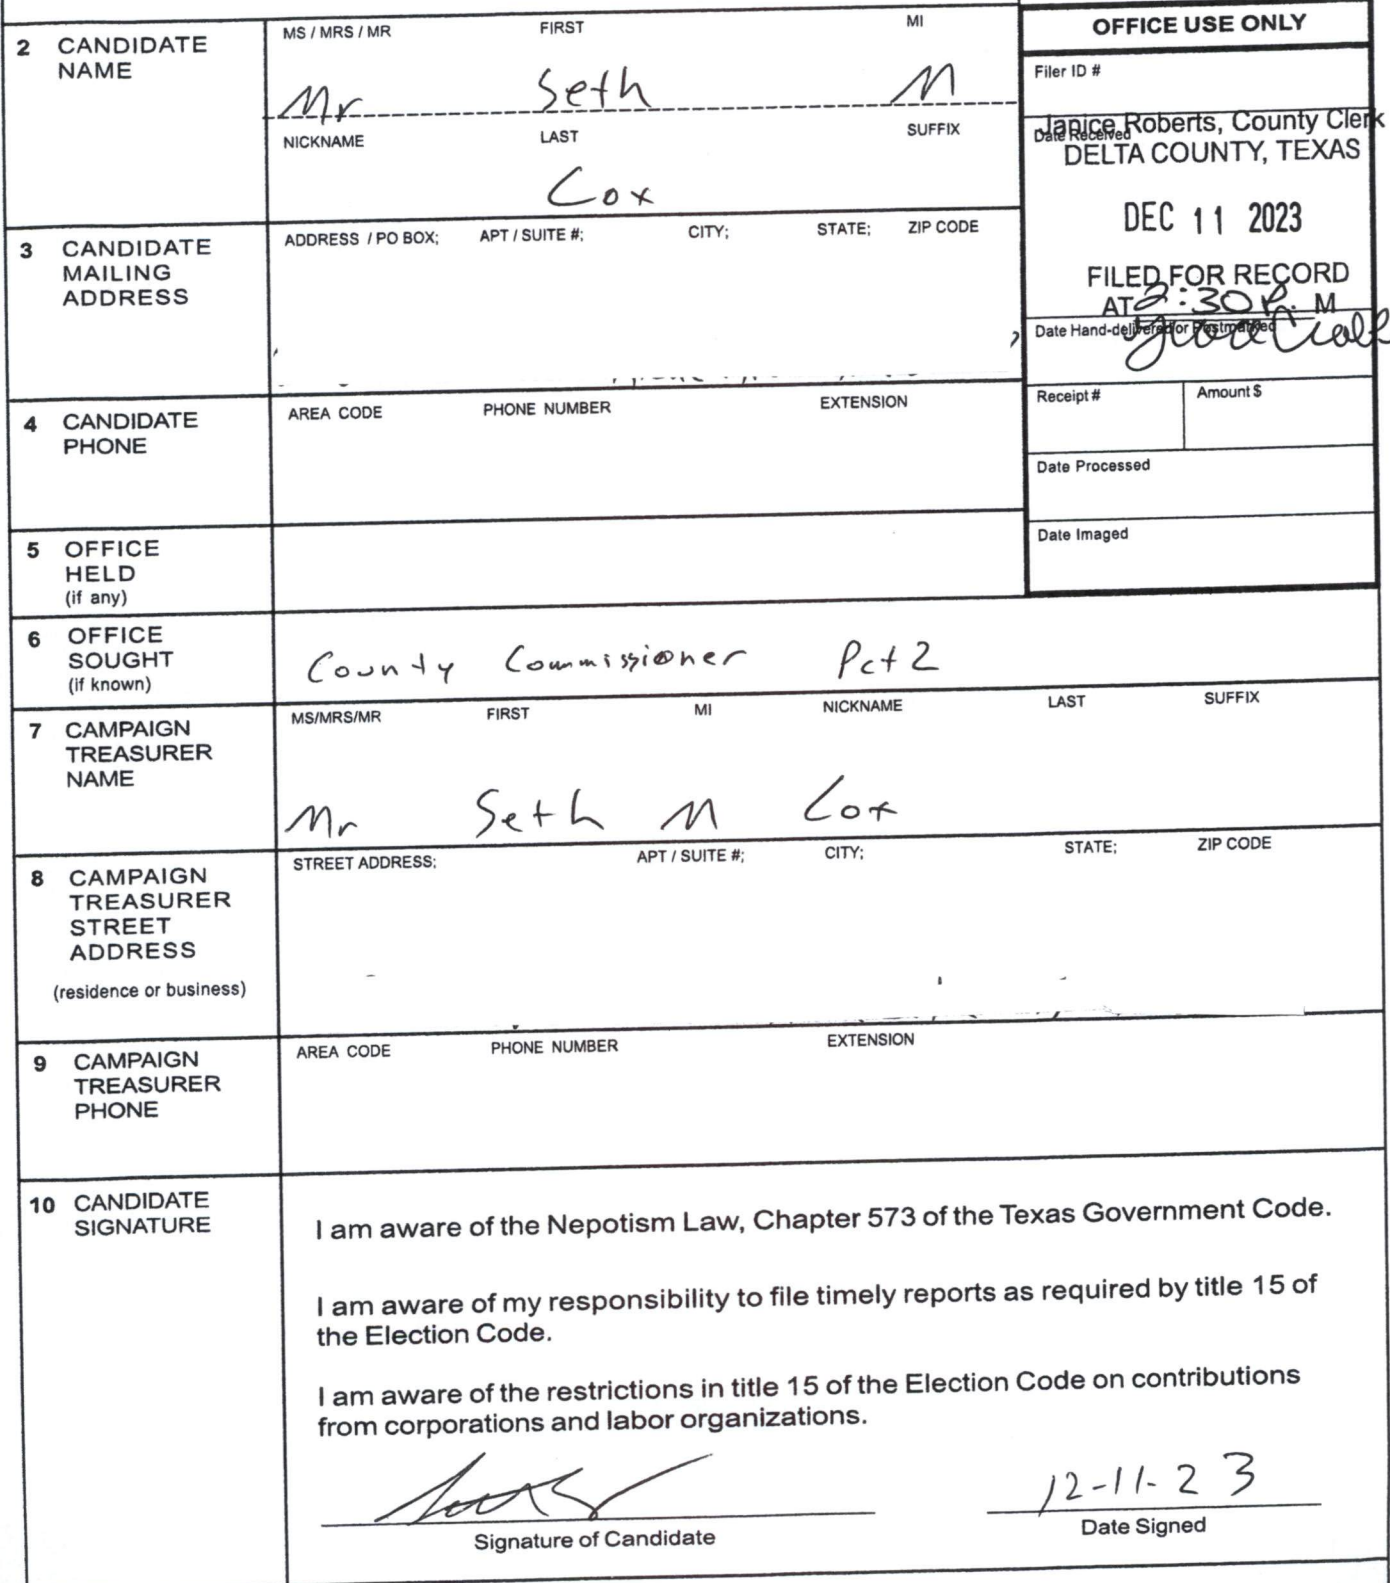 2 CANDIDATE NAME
MS / MRS / MR FIRST MI
Mr Seth M
NICKNAME LAST SUFFIX
Cox
OFFICE USE ONLY
Filer ID #
Date Received
Janice Roberts, County Clerk
DELTA COUNTY, TEXAS
DEC 11 2023
FILED FOR RECORD
AT 2:30 P. M
Date Hand-delivered or Postmarked
Receipt # Amount $
Date Processed
Date Imaged
3 CANDIDATE MAILING ADDRESS
ADDRESS / PO BOX; APT / SUITE #; CITY; STATE; ZIP CODE
4 CANDIDATE PHONE
AREA CODE PHONE NUMBER EXTENSION
5 OFFICE HELD
(if any)
6 OFFICE SOUGHT
(if known)
County Commissioner Pct 2
7 CAMPAIGN TREASURER NAME
MS/MRS/MR FIRST MI NICKNAME LAST SUFFIX
Mr Seth M Cox
8 CAMPAIGN TREASURER STREET ADDRESS
(residence or business)
STREET ADDRESS; APT / SUITE #; CITY; STATE; ZIP CODE
9 CAMPAIGN TREASURER PHONE
AREA CODE PHONE NUMBER EXTENSION
10 CANDIDATE SIGNATURE
I am aware of the Nepotism Law, Chapter 573 of the Texas Government Code.
I am aware of my responsibility to file timely reports as required by title 15 of
the Election Code.
I am aware of the restrictions in title 15 of the Election Code on contributions
from corporations and labor organizations.
12-11-23
Signature of Candidate Date Signed